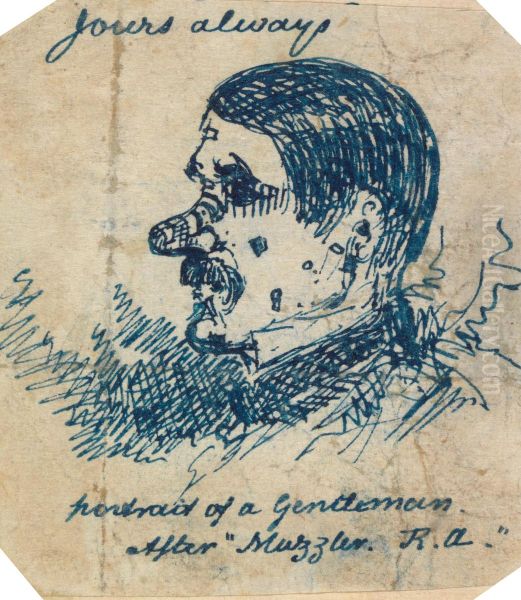 Yours always
portrait of a Gentleman.
After "Muzzler. R.A."